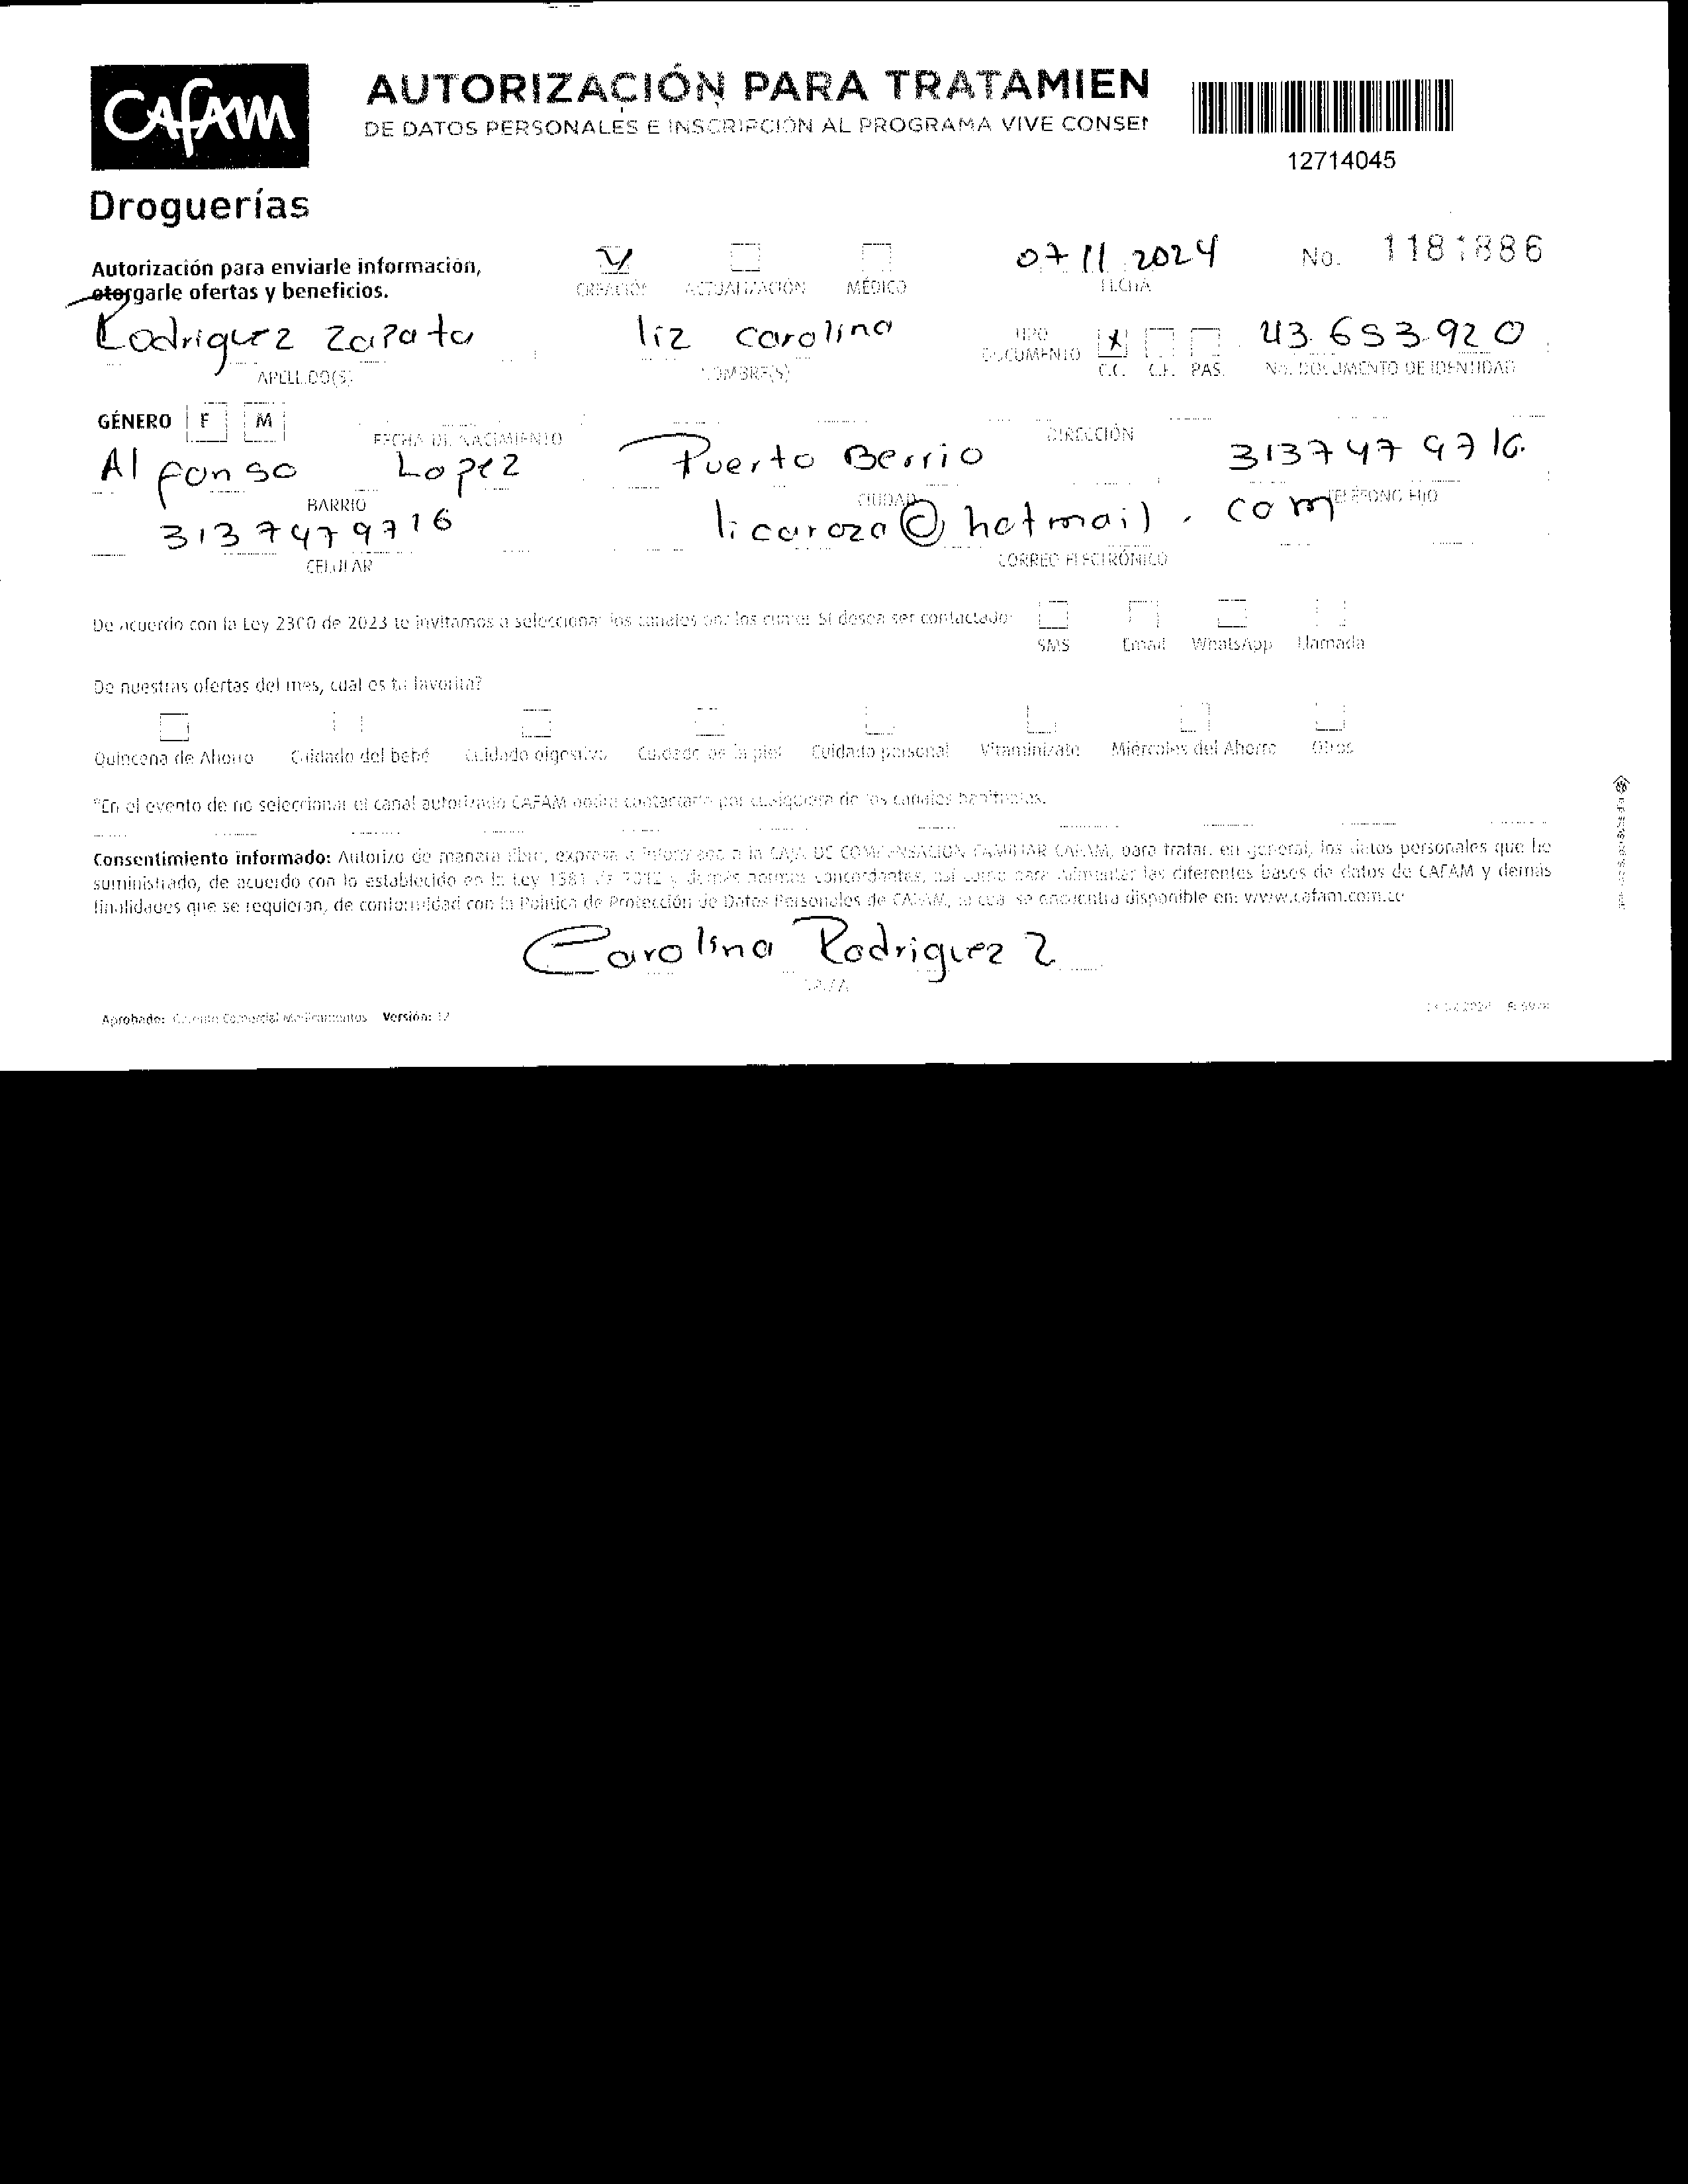 CAFAM
Droguerías
AUTORIZACIÓN PARA TRATAMIEN
DE DATOS PERSONALES E INSCRIPCIÓN AL PROGRAMA VIVE CONSEN
12714045
Autorización para enviarle información,
otorgarle ofertas y beneficios.
CREACIÓN ACTUALIZACIÓN MÉDICO
07 11 2024
FECHA
No. 1181886
Rodriguez Zapata liz carolina
APELLIDO(S) NOMBRE(S)
TIPO DOCUMENTO X C.C. C.E. PAS.
43.653.920
No. DOCUMENTO DE IDENTIDAD
GÉNERO F M
FECHA DE NACIMIENTO DIRECCIÓN
Alfonso Lopez Puerto Berrio 3137479716
BARRIO CIUDAD TELÉFONO FIJO
3137479716 licaroza@hotmail.com
CELULAR CORREO ELECTRÓNICO
De acuerdo con la Ley 2300 de 2023 te invitamos a seleccionar los canales por los cuales Sí desea ser contactado:
SMS Email WhatsApp Llamada
De nuestras ofertas del mes, cual es tu favorita?
Quincena de Ahorro Cuidado del bebé Cuidado digestivo Cuidado de la piel Cuidado personal Vitaminízate Miércoles del Ahorro Otros
*En el evento de no seleccionar el canal autorizado CAFAM podrá contactarte por cualquiera de los canales
Consentimiento informado: Autorizo de manera libre, expresa e informada a la CAJA DE COMPENSACIÓN FAMILIAR CAFAM, para tratar, en general, los datos personales que he
suministrado, de acuerdo con lo establecido en la Ley 1581 de 2012 y demás normas concordantes, así como para alimentar las diferentes bases de datos de CAFAM y demás
finalidades que se requieran, de conformidad con la Política de Protección de Datos Personales de CAFAM, la cual se encuentra disponible en: www.cafam.com.co
Carolina Rodriguez Z
FIRMA
Aprobado: Gerente Comercial Medicamentos Versión: 12